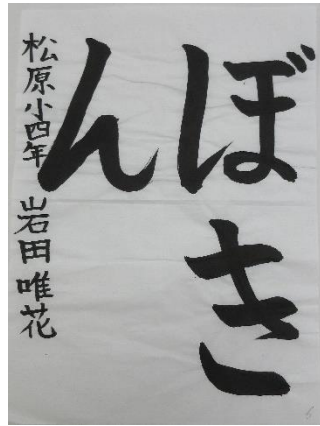 ぼき
ん
松原小四年 岩田唯花